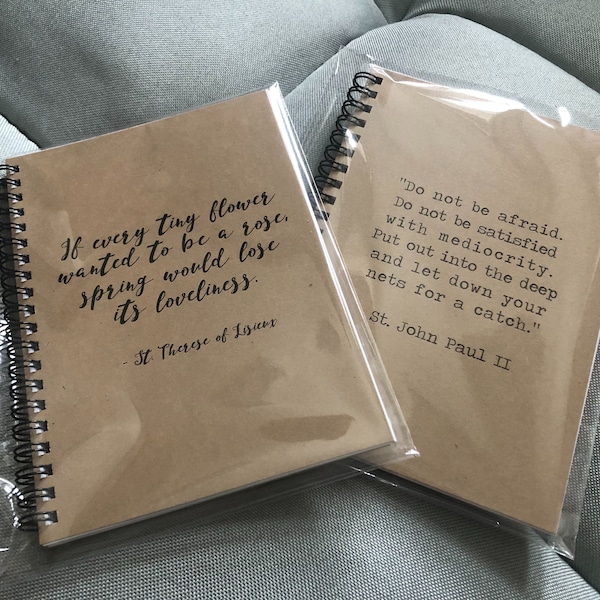 If every tiny flower
wanted to be a rose,
spring would lose
its loveliness.
- St. Therese of Lisieux
"Do not be afraid.
Do not be satisfied
with mediocrity.
Put out into the deep
and let down your
nets for a catch."
St. John Paul II